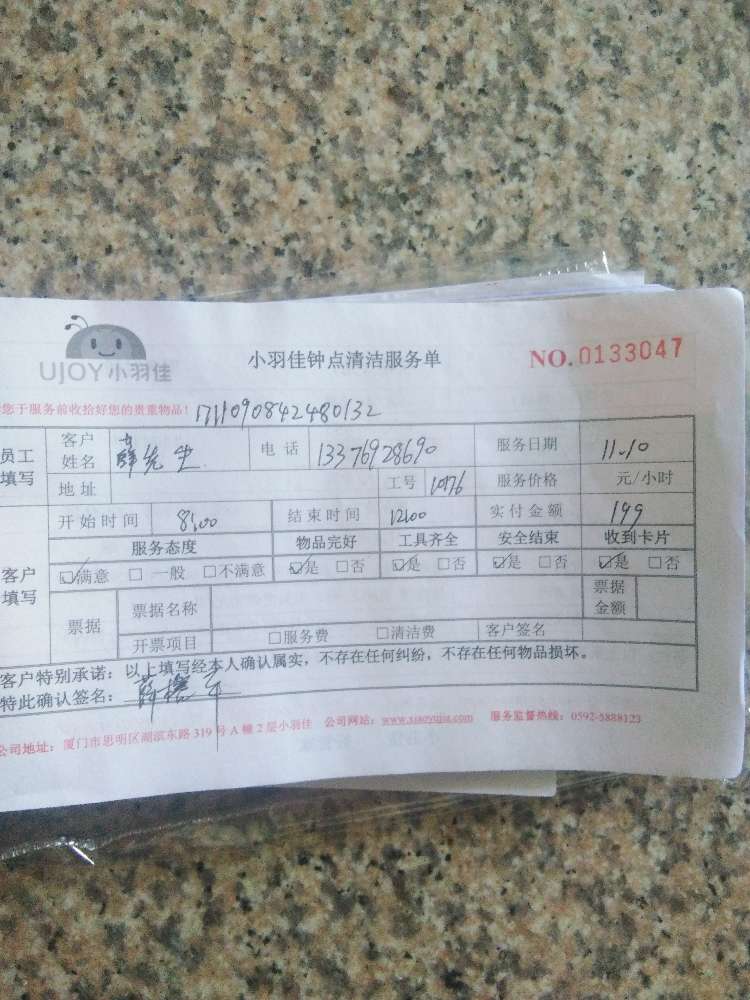 UJOY小羽佳
小羽佳钟点清洁服务单
NO.0133047
您于服务前收拾好您的贵重物品！
1711090842480132
员工填写
客户姓名 薛先生 电话 13376928690 服务日期 11.10
地址 工号 10776 服务价格 元/小时
客户填写
开始时间 8:00 结束时间 12:00 实付金额 199
服务态度 物品完好 工具齐全 安全结束 收到卡片
☑满意 □一般 □不满意 ☑是 □否 ☑是 □否 ☑是 □否 ☑是 □否
票据 票据名称 票据金额
开票项目 □服务费 □清洁费 客户签名
客户特别承诺：以上填写经本人确认属实，不存在任何纠纷，不存在任何物品损坏。
特此确认签名：薛
公司地址：厦门市思明区湖滨东路319号A幢2层小羽佳 公司网站： 服务监督热线：0592-5888123